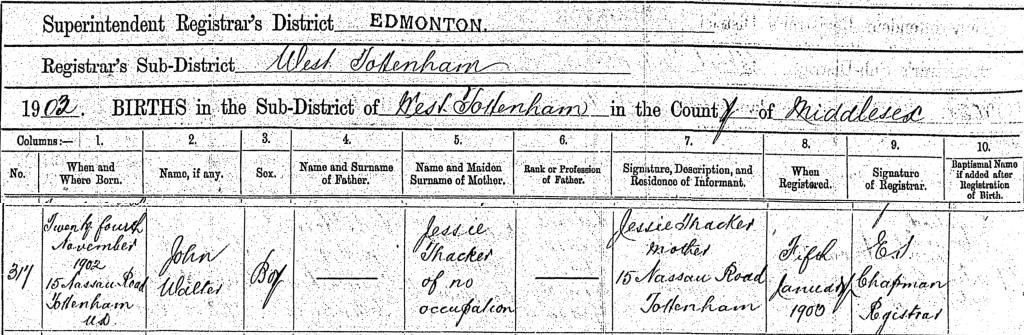 Superintendent Registrar's District EDMONTON.
Registrar's Sub-District West Tottenham
1903. BIRTHS in the Sub-District of West Tottenham in the County of Middlesex
Columns:— 1. 2. 3. 4. 5. 6. 7. 8. 9. 10.
No. When and Where Born. Name, if any. Sex. Name and Surname of Father. Name and Maiden Surname of Mother. Rank or Profession of Father. Signature, Description, and Residence of Informant. When Registered. Signature of Registrar. Baptismal Name if added after Registration of Birth.
317
Twenty fourth
November
1902
15 Nassau Road
Tottenham
U.D
John
Walter
Boy
Jessie
Thacker
of no
occupation
Jessie Thacker
mother
15 Nassau Road
Tottenham
Fifth
January
1903
Chapman
Registrar